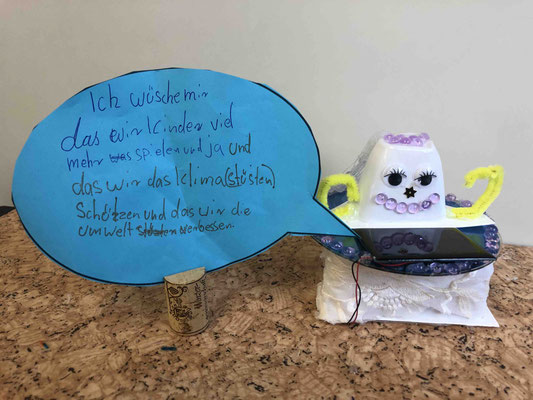 Ich wüsche mir
das wir Kinder viel
mehr was spielen und ja und
das wir das Klima (stüsten)
Schötzen und das wir die
umwelt verbessen.